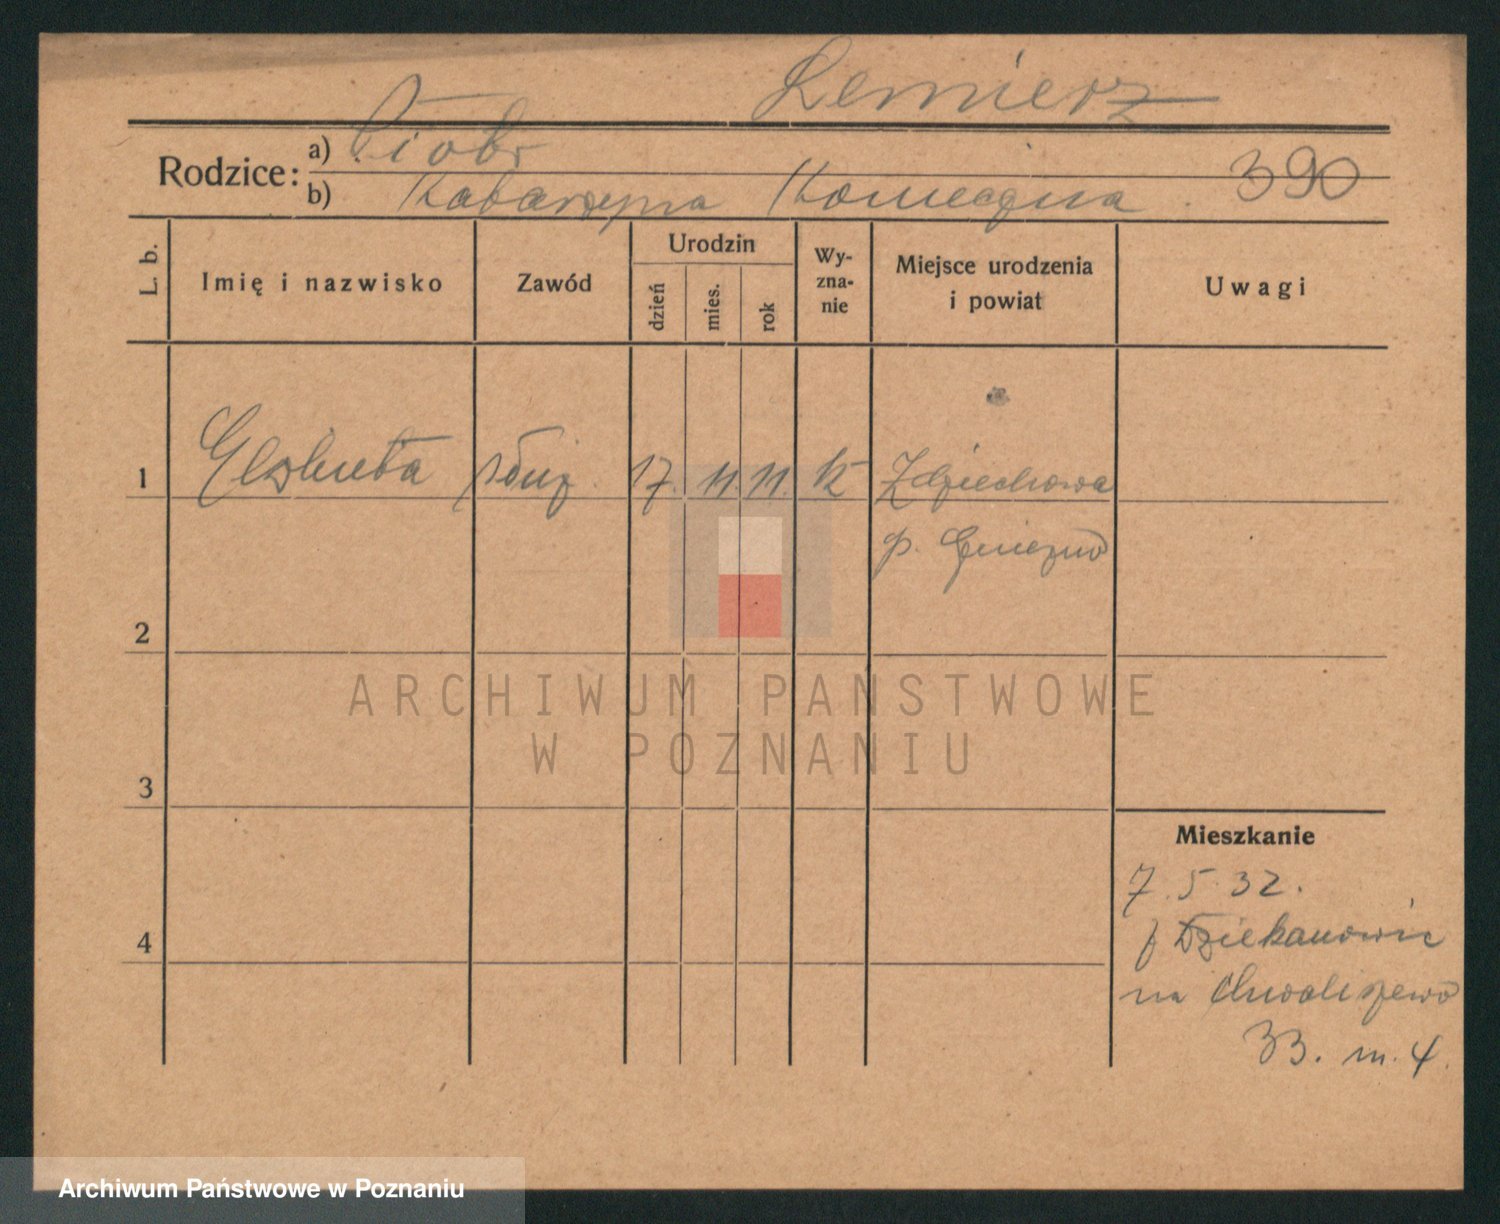 Lemierz
Rodzice: a) Piotr
b) Katarzyna Konieczna 390
L. b. Imię i nazwisko Zawód Urodzin dzień mies. rok Wyzna-nie Miejsce urodzenia i powiat Uwagi
1 Elżbieta służ. 17. 11 11. k Zdziechowa
p. Gniezno
2
3
4
Mieszkanie
7.5.32.
f Dziekanowic
na Chwaliszewo
33. m. 4.
ARCHIWUM PAŃSTWOWE
W POZNANIU
Archiwum Państwowe w Poznaniu